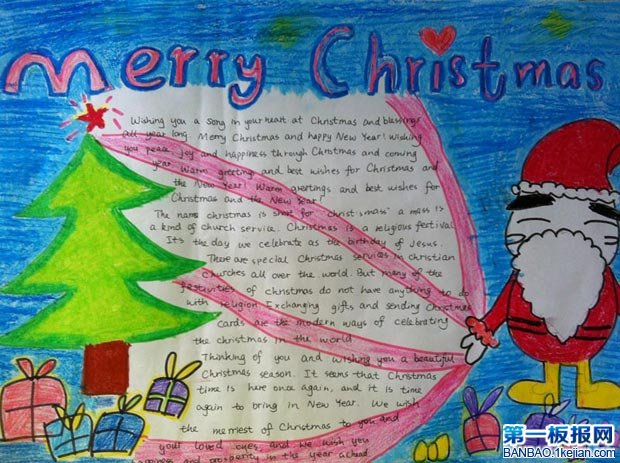 Merry Christmas
Wishing you a song in your heart at Christmas and blessings
all year long. Merry Christmas and happy New Year! Wishing
you peace joy and happiness through Christmas and coming
year. Warm greeting and best wishes for Christmas and
the New Year! Warm greetings and best wishes for
Christmas and the New Year!
The name christmas is short for "christ's mass" a mass is
a kind of church service. Christmas is a religious festival
It's the day we celebrate as the birthday of Jesus.
There are special Christmas services in christian
Churches all over the world. But many of the
festivities of christmas do not have anything to do
with religion Exchanging gifts and sending Christmas
Cards are the modern ways of celebrating
the christmas in the world
Thinking of you and wishing you a beautiful
Christmas season. It seems that Christmas
time is here once again, and it is time
again to bring in New Year. We wish
the merriest of Christmas to you and
your loved ones, and we wish you
happiness and prosperity in the year ahead.
第一板报网
BANBAO.1kejian.com